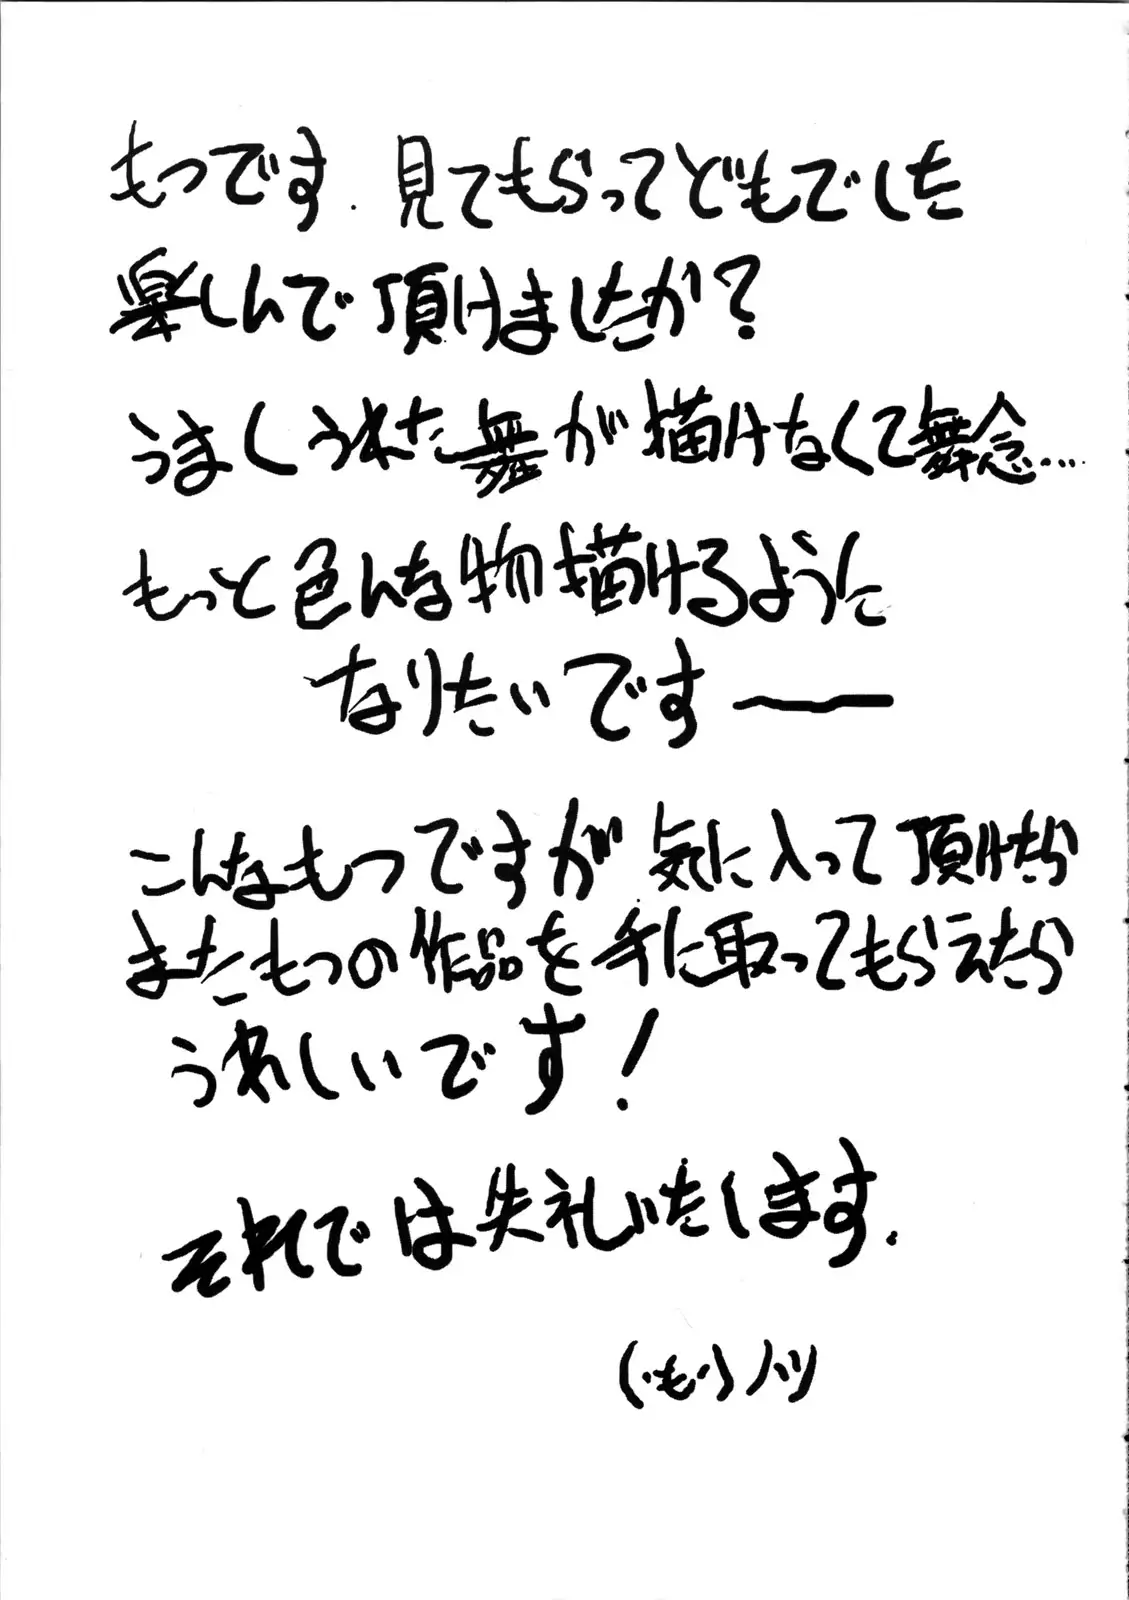 もつです. 見てもらってどもでした
楽しんで頂けましたか?
うまくうれた舞が描けなくて無念…
もっと色んな物描けるように
なりたいです〜
こんなもつですが気に入って頂けたら
またもつの作品を手に取ってもらえたら
うれしいです!
それでは失礼いたします.
(・も・)ノシ